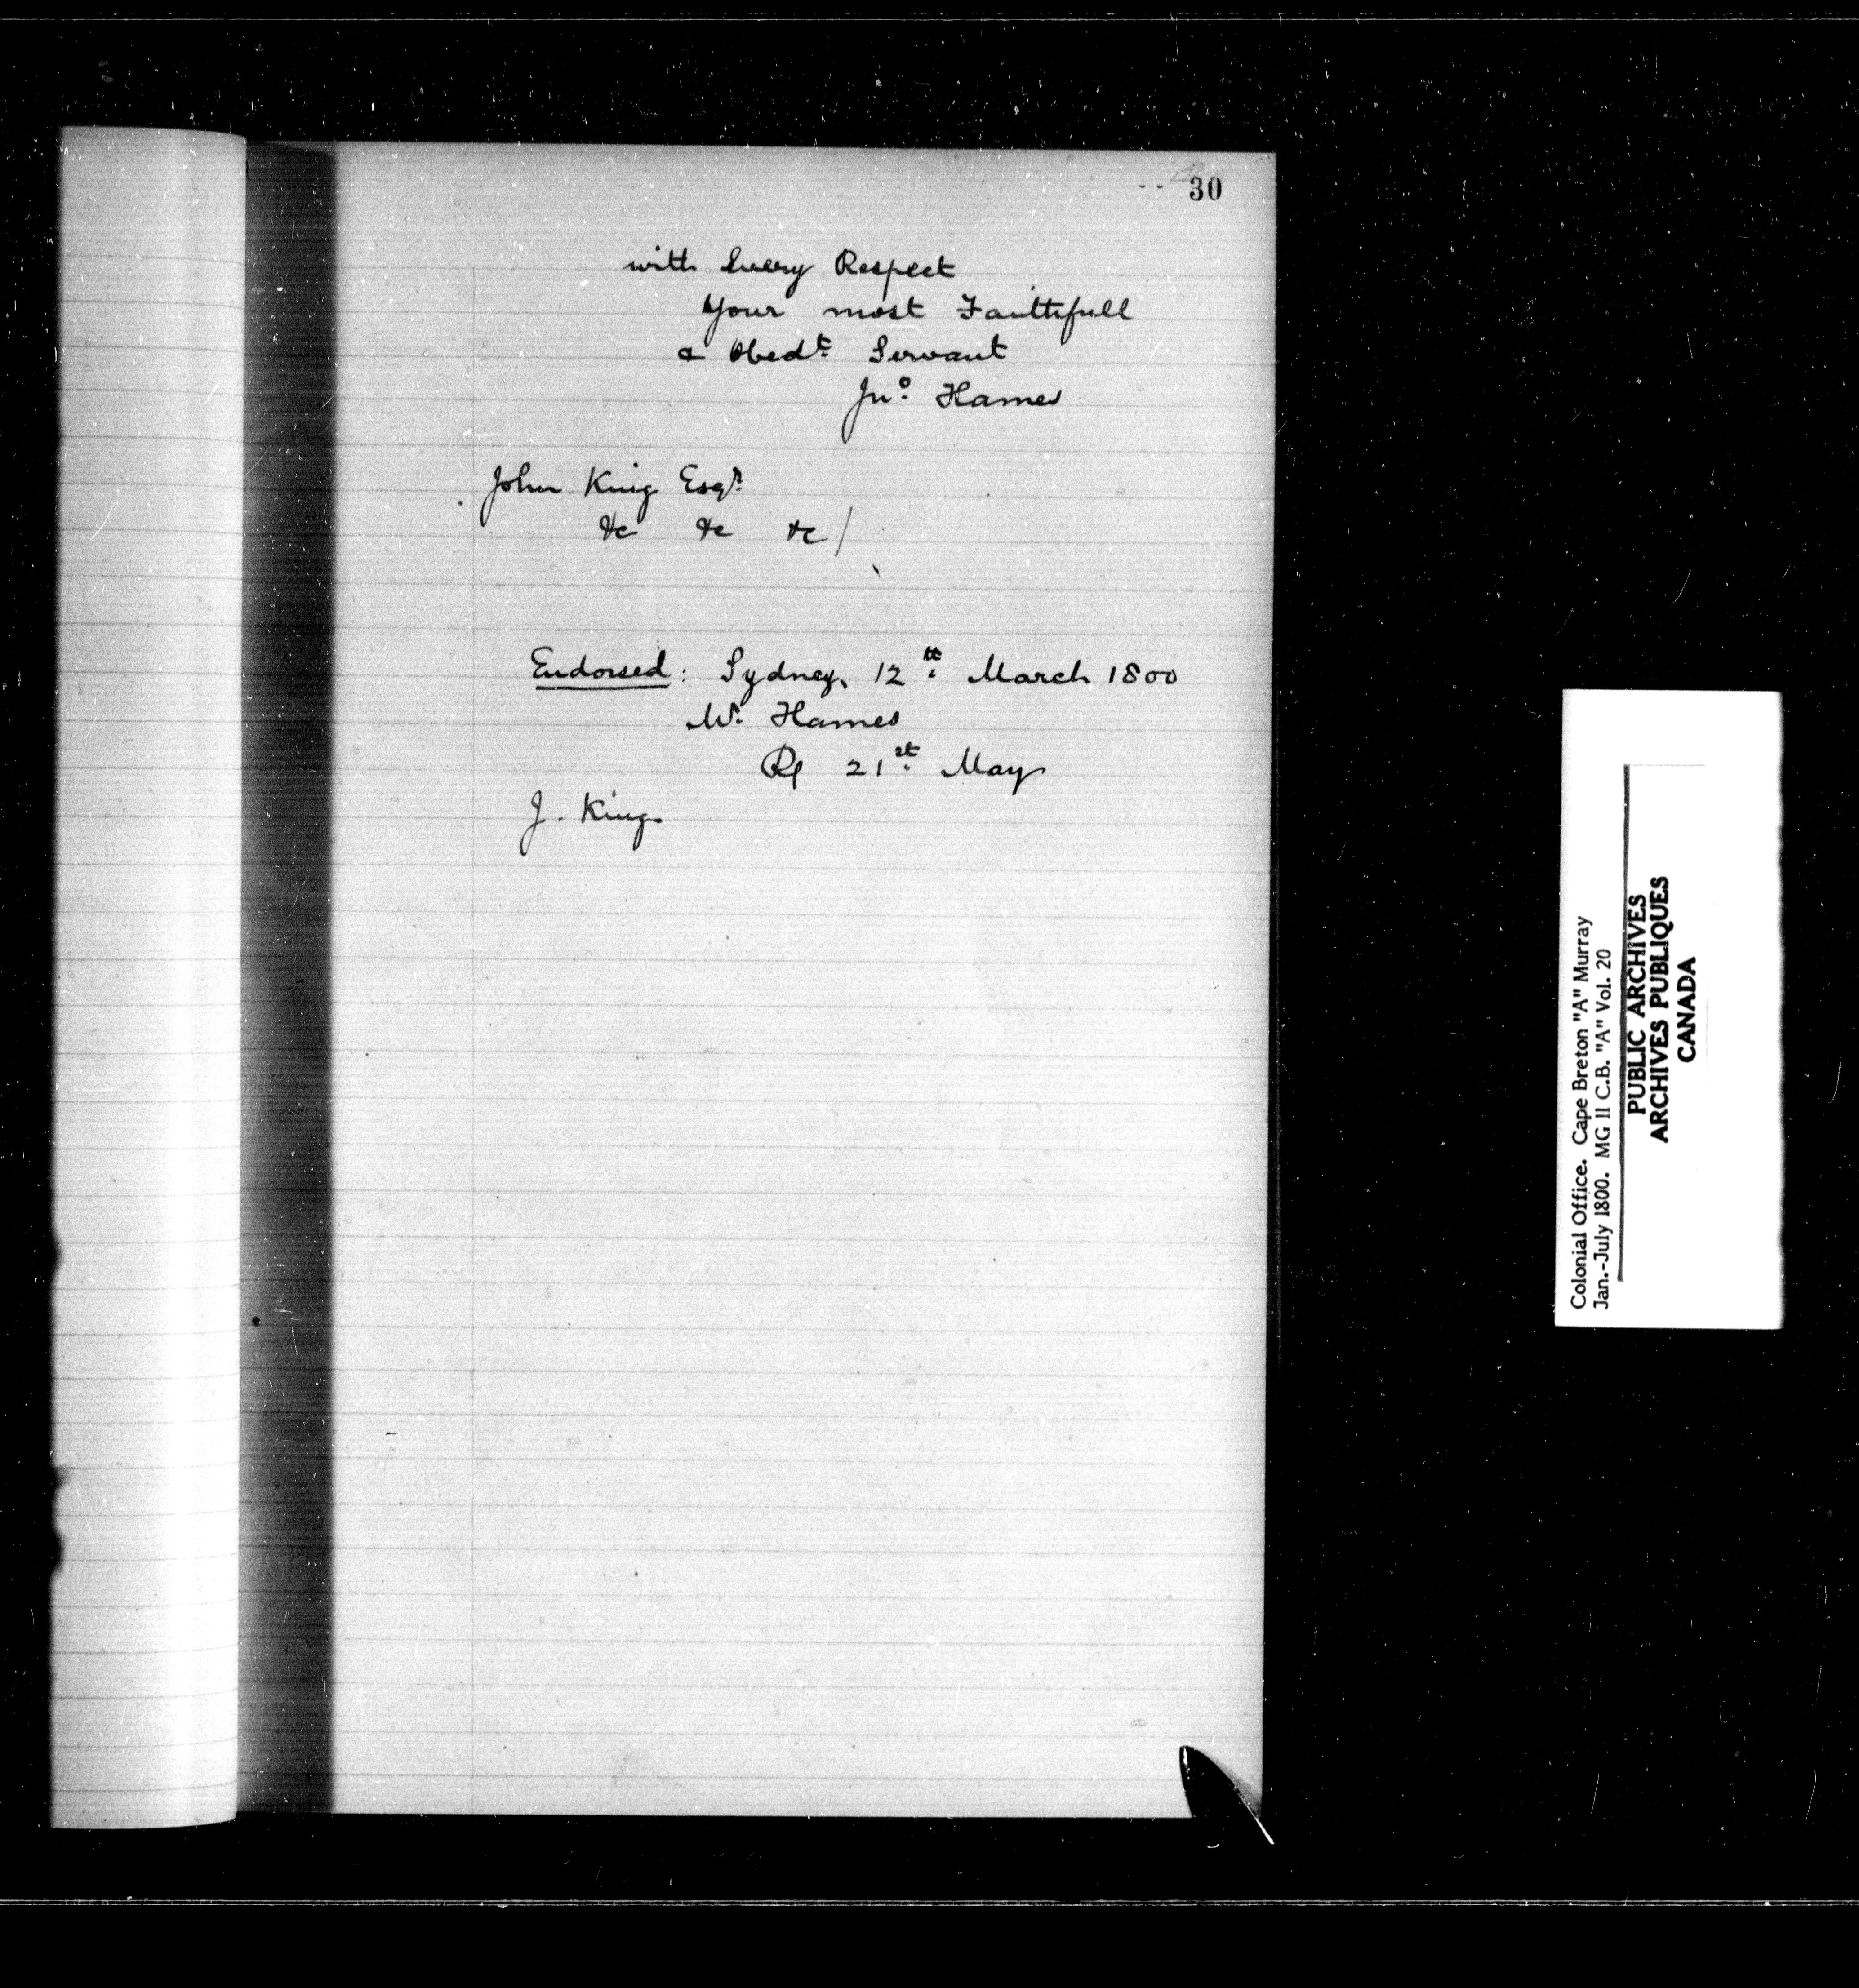 30
with Every Respect
Your most Faithfull
& Obedt. Servant
Jno. Hames
John King Esqr.
&c &c &c/
Endorsed: Sydney, 12th. March 1800
Mr. Hames
R 21st. May
J. King.
Colonial Office. Cape Breton "A" Murray
Jan.-July 1800. MG 11 C.B. "A" Vol. 20
PUBLIC ARCHIVES
ARCHIVES PUBLIQUES
CANADA